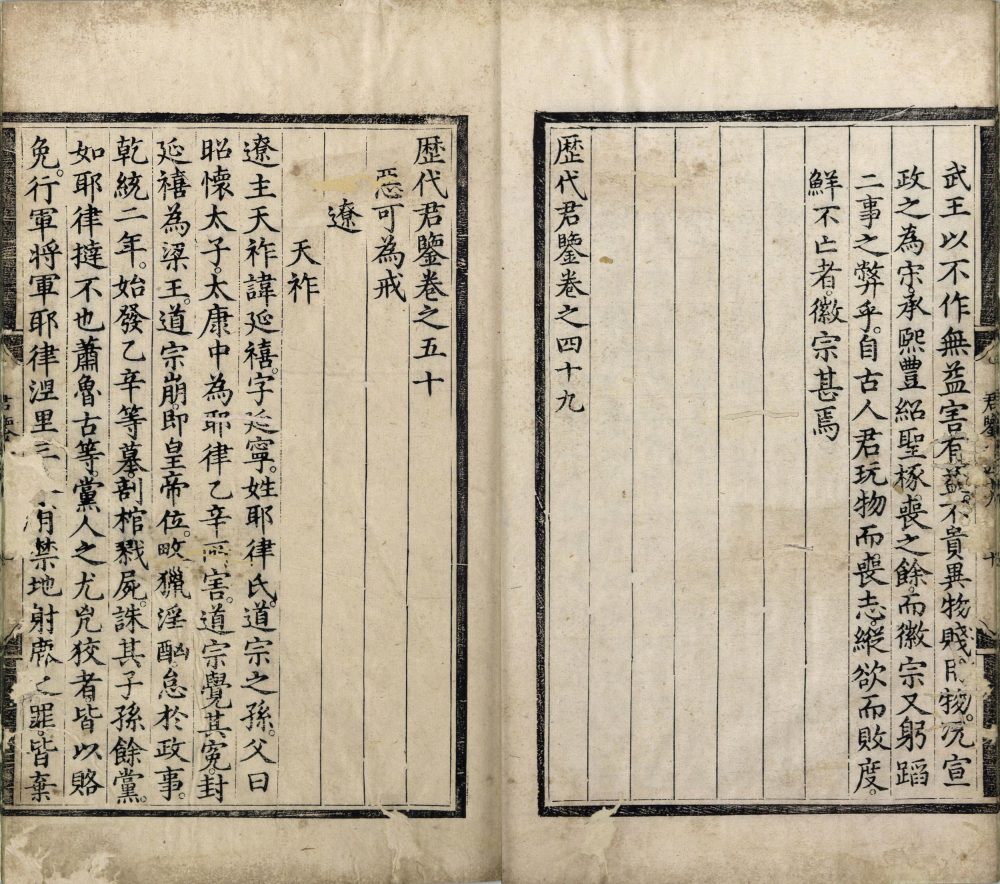 武王以不作無益害有益不貴異物賤用物。况宣
政之為宋。承熙豐紹聖椓喪之餘。而徽宗又躬蹈
二事之弊乎。自古人君玩物而喪志。縱欲而敗度。
鮮不亡者。徽宗甚焉
歷代君鑒卷之四十九
歷代君鑒卷之五十
惡可為戒
遼
天祚
遼主天祚諱延禧。字延寧。姓耶律氏。道宗之孫。父曰
昭懷太子。太康中為耶律乙辛所害。道宗覺其冤封
延禧為梁王。道宗崩。即皇帝位。畋獵淫酗怠於政事。
乾統二年。始發乙辛等墓。剖棺戮屍。誅其子孫餘黨。
如耶律撻不也蕭魯古等。黨人之尤兇狡者。皆以賂
免。行軍將軍耶律涅里三禁地射鹿之罪。皆棄
君鑒